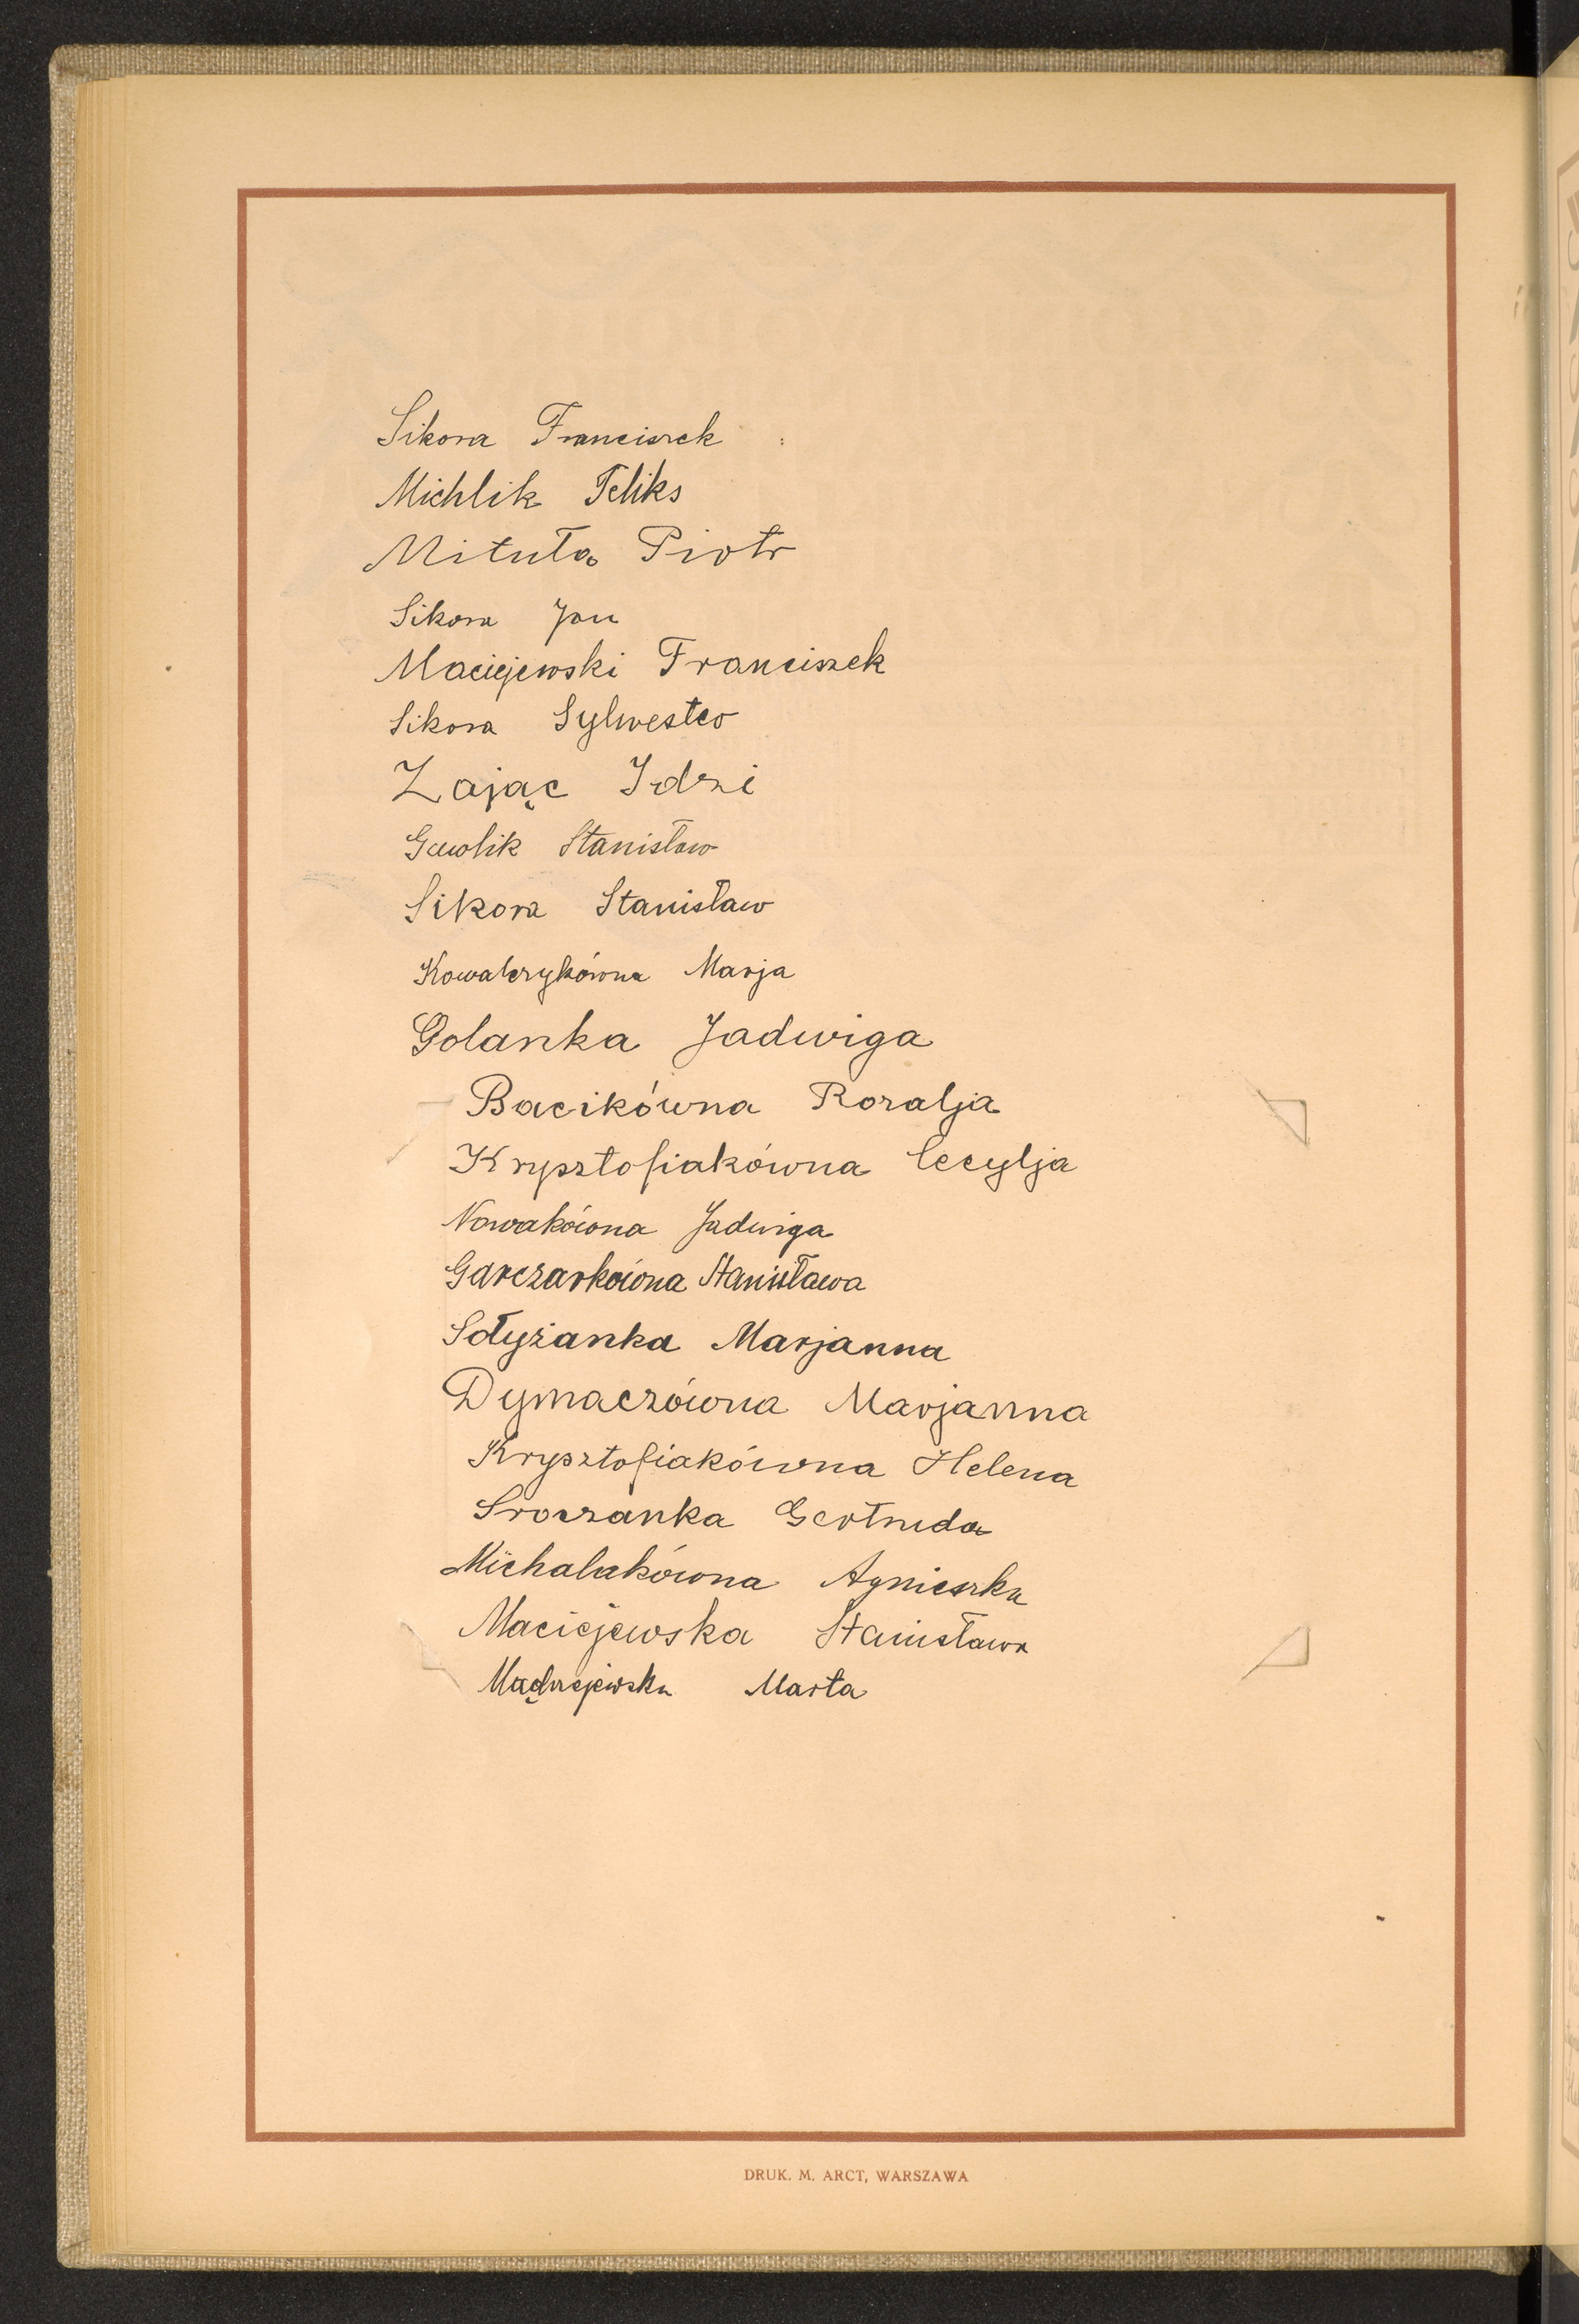 Sikora Franciszek
Michlik Feliks
Mituła Piotr
Sikora Jan
Maciejewski Franciszek
Sikora Sylwester
Zając Idzi
Gawlik Stanisław
Sikora Stanisław
Kowalczykówna Marja
Golanka Jadwiga
Bacikówna Rozalja
Krysztofiakówna Cecylja
Nowakówna Jadwiga
Garczarkówna Stanisława
Sołyżanka Marjanna
Dymaczówna Marjanna
Krysztofiakówna Helena
Sroczanka Gertruda
Michalakówna Agnieszka
Maciejewska Stanisława
Marta
DRUK. M. ARCT, WARSZAWA